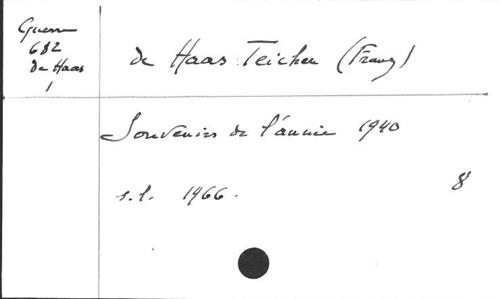 Guerre
682
de Haas
1
de Haas Teichen (Franz)
Souvenirs de l'année 1940
s.l. 1966.
8